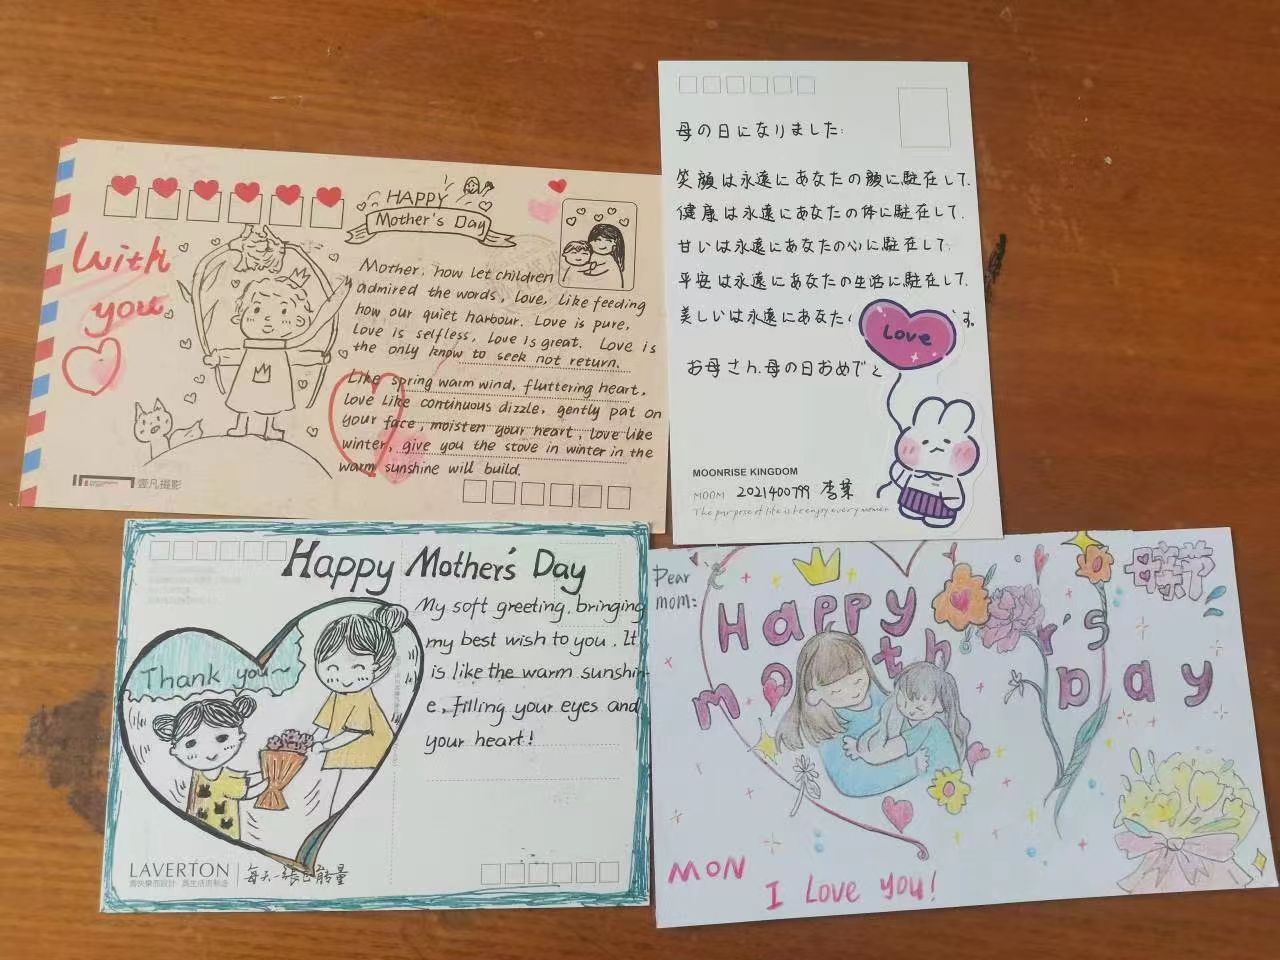 HAPPY
Mother's Day
With
you
Mother, how let children
admired the words, love, like feeding
how our quiet harbour. Love is pure,
Love is selfless, Love is great. Love is
the only know to seek not return.
Like spring warm wind, fluttering heart,
love like continuous dizzle, gently pat on
your face, moisten your heart, love like
winter, give you the stove in winter in the
warm sunshine will build.
壹凡摄影
母の日になりました.
笑顔は永遠にあなたの顔に駐在して.
健康は永遠にあなたの体に駐在して.
甘いは永遠にあなたの心に駐在して.
平安は永遠にあなたの生活に駐在して.
美しいは永遠にあなた す。
Love
お母さん.母の日おめでと
MOONRISE KINGDOM
MOOM 2021400799 李葉
The purpose of life is to enjoy every moment
Happy Mother's Day
Thank you~
My soft greeting, bringing
my best wish to you. It
is like the warm sunshin
e, filling your eyes and
your heart!
LAVERTON
每天一張正能量
Dear
mom:
Happy
moth r's
Day
母亲节
MON
I Love you!